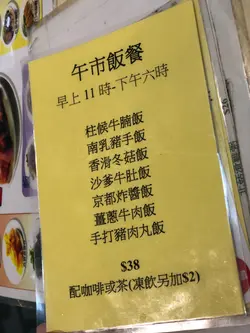 午市飯餐
早上11時-下午六時
柱候牛腩飯
南乳豬手飯
香滑冬菇飯
沙爹牛肚飯
京都炸醬飯
薑蔥牛肉飯
手打豬肉丸飯
$38
配咖啡或茶(凍飲另加$2)